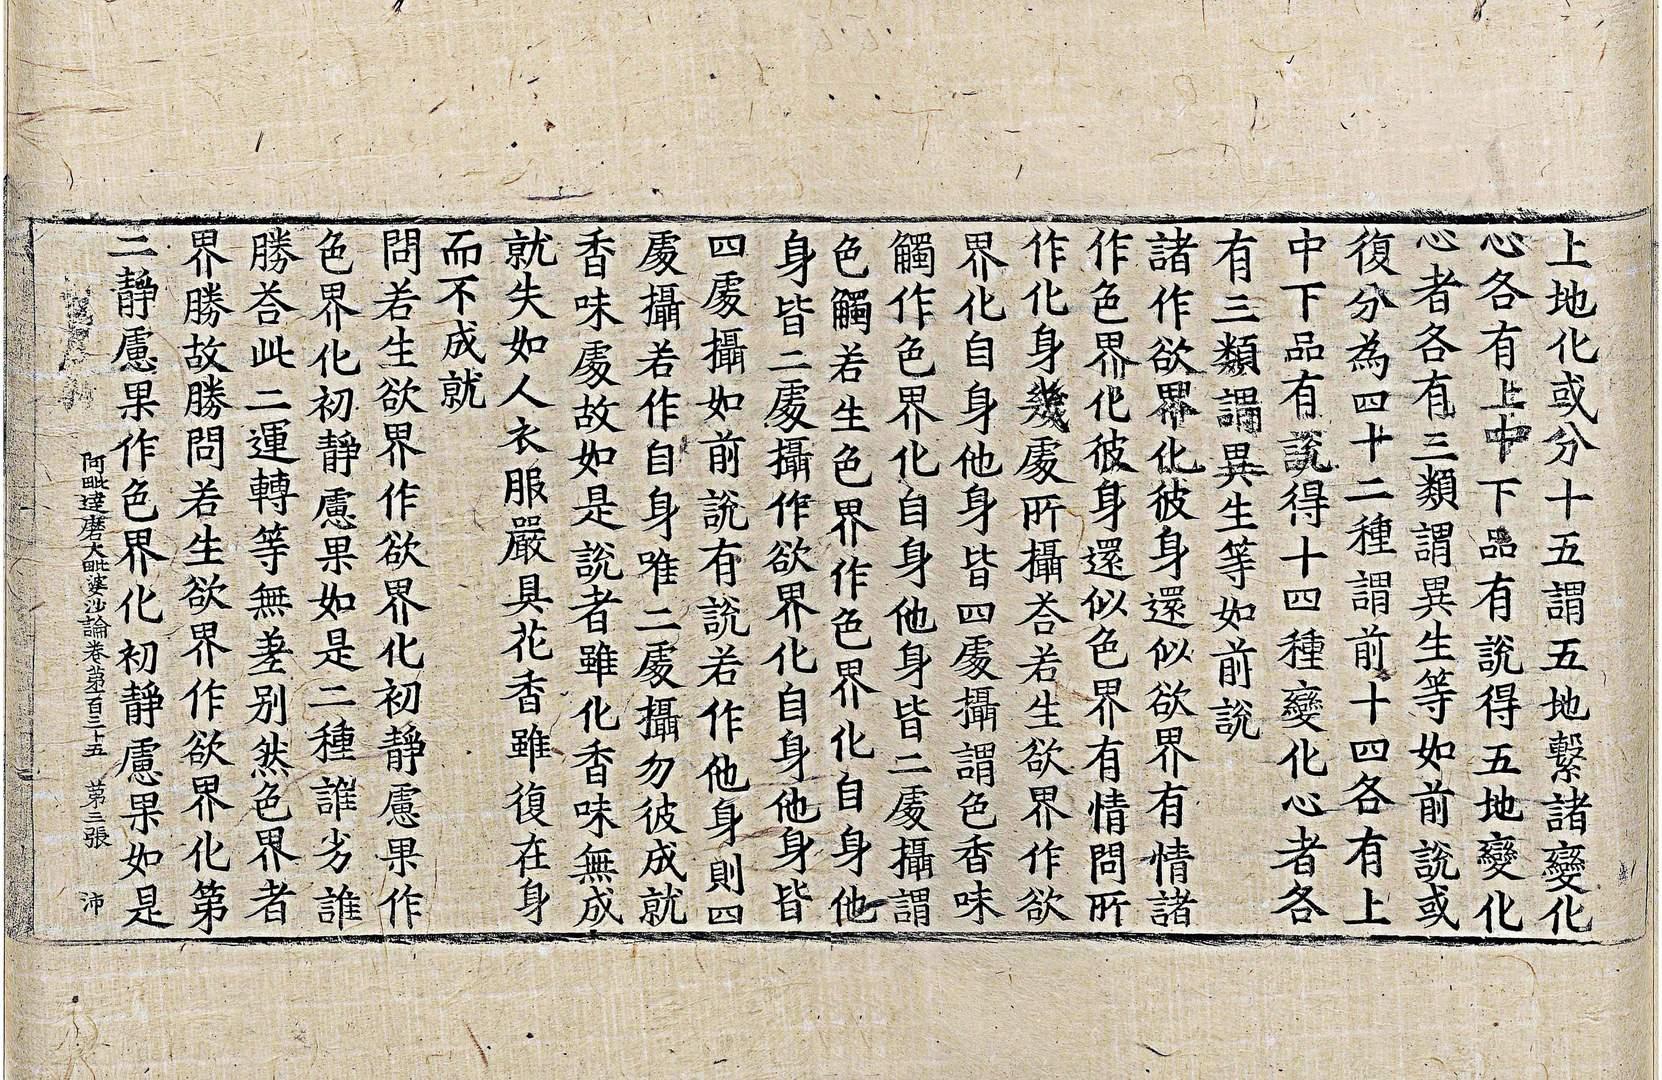 上地化或分十五謂五地繫諸變化
心各有上中下品有說得五地變化
心者各有三類謂異生等如前說或
復分為四十二種謂前十四各有上
中下品有說得十四種變化心者各
有三類謂異生等如前說
諸作欲界化彼身還似欲界有情諸
作色界化彼身還似色界有情問所
作化身幾處所攝荅若生欲界作欲
界化自身他身皆四處攝謂色香味
觸作色界化自身他身皆二處攝謂
色觸若生色界作色界化自身他
身皆二處攝作欲界化自身他身皆
四處攝如前說有說若作他身則四
處攝若作自身唯二處攝勿彼成就
香味處故如是說者雖化香味無成
就失如人衣服嚴具花香雖復在身
而不成就
問若生欲界作欲界化初靜慮果作
色界化初靜慮果如是二種誰劣誰
勝荅此二運轉等無差別然色界者
界勝故勝問若生欲界作欲界化第
二靜慮果作色界化初靜慮果如是
阿毗達磨大毗婆沙論卷第百三十五 第三張 沛